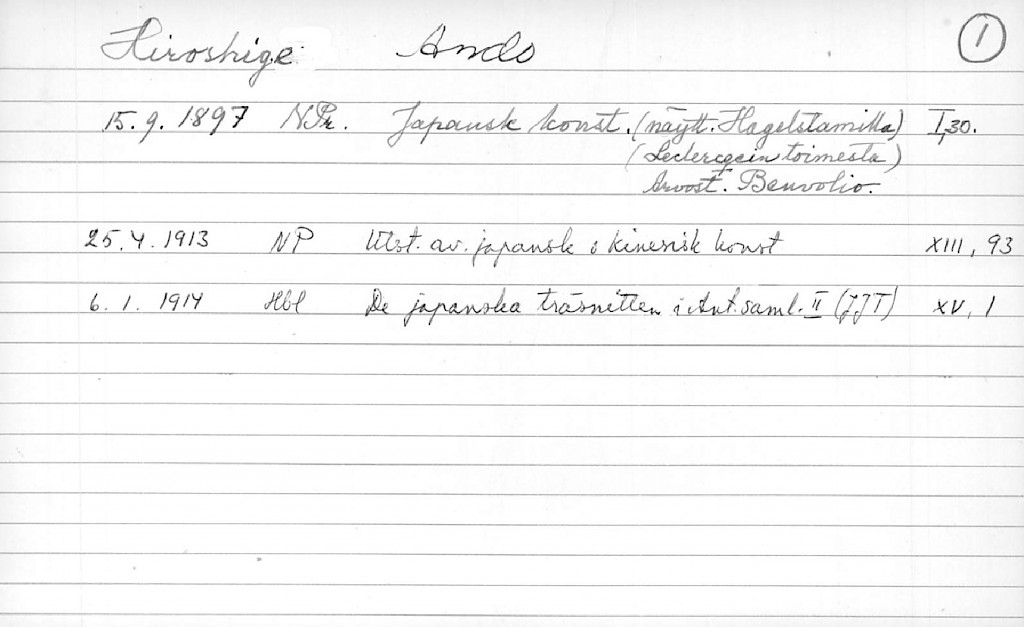 Hiroshige Ando 1
15.9.1897 N.Pr. Japansk konst. (näytt. Hagelstamilla) I,30.
(Leclercqein toimesta)
Arvost. Benvolio.
25.4.1913 NP Utst. av. japansk o kinesisk konst XIII, 93
6.1.1914 Hbl De japanska träsnitten i Ant. saml. II (JJT) XV, 1